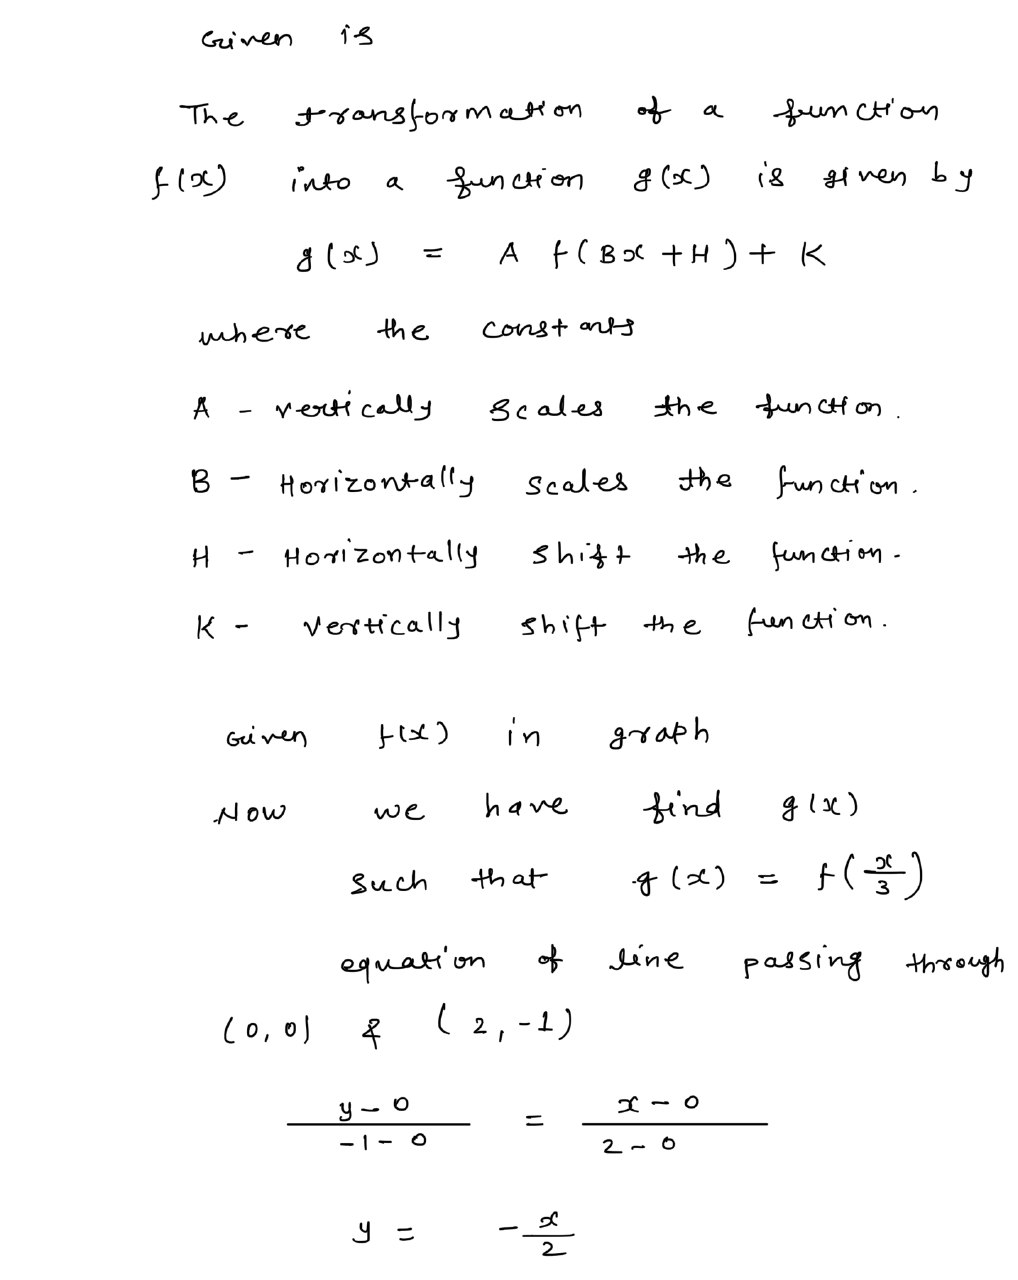 Given is
The transformation of a function
f(x) into a function g(x) is given by
g(x) = A f(Bx + H) + K
where the constants
A - vertically scales the function.
B - Horizontally scales the function.
H - Horizontally shift the function.
K - vertically shift the function.
Given f(x) in graph
Now we have find g(x)
such that g(x) = f(x/3)
equation of line passing through
(0,0) & (2,-1)
y-0 / -1-0 = x-0 / 2-0
y = -x/2